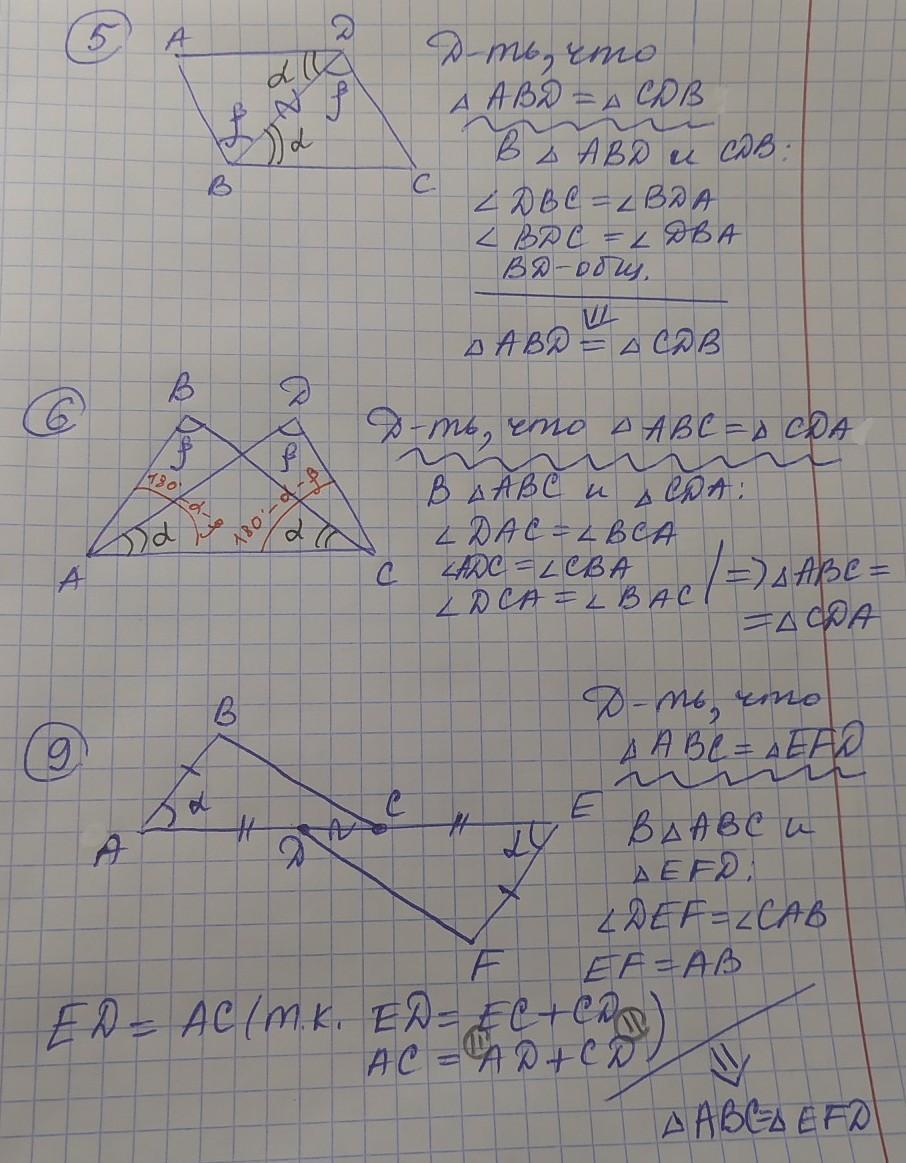 5
A D
α
β β
α
B C
Д-ть, что
△ ABD = △ CDB
В △ ABD и CDB:
∠ DBC = ∠ BDA
∠ BDC = ∠ DBA
BD - общ.
⇓
△ ABD = △ CDB
6
B D
β β
180°-α-β 180°-α-β
α α
A C
Д-ть, что △ ABC = △ CDA
В △ ABC и △ CDA:
∠ DAC = ∠ BCA
∠ADC = ∠CBA
∠ DCA = ∠ BAC | => △ ABC =
= △ CDA
9
B
α C E
A D α
F
Д-ть, что
△ ABC = △ EFD
В △ ABC и
△ EFD:
∠DEF = ∠CAB
EF = AB
ED = AC (т.к. ED = EC + CD
AC = AD + CD)
⇓
△ ABC = △ EFD